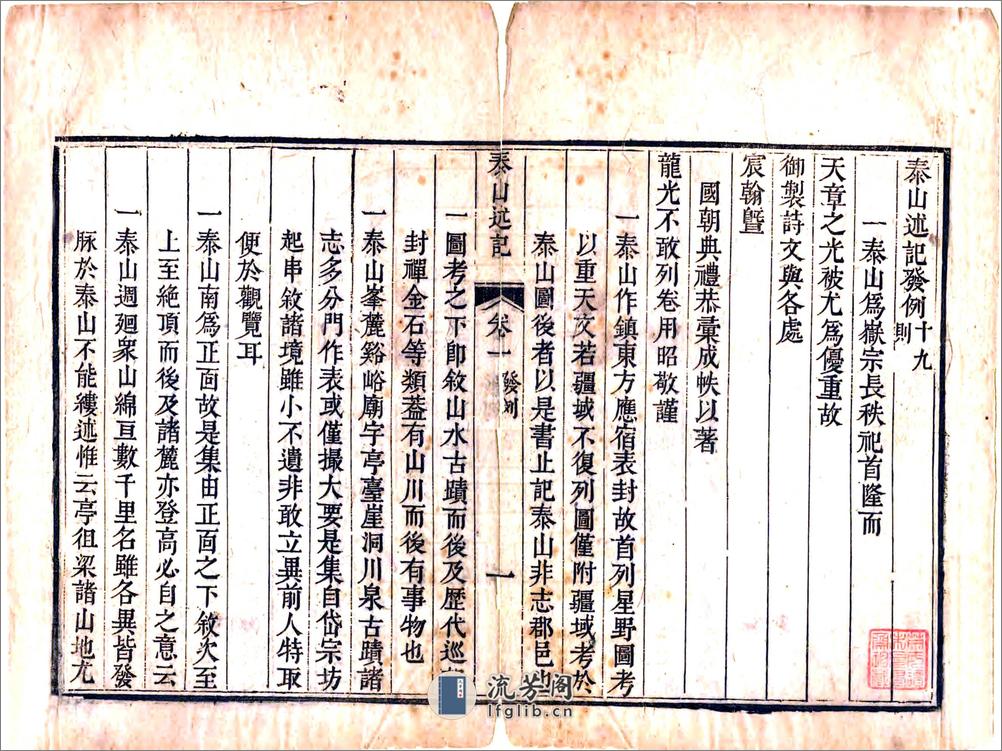 泰山述記發例十九則
一泰山爲嶽宗長秩祀首隆而
天章之光被尤爲優重故
御製詩文與各處
宸翰曁
國朝典禮恭彙成帙以著
龍光不敢列卷用昭敬謹
一泰山作鎭東方應宿表封故首列星野圖考
以重天文若疆域不復列圖僅附疆域考於
泰山圖後者以是書止記泰山非志郡邑也
泰山述記
卷一
發例
一
一圖考之下卽敘山水古蹟而後及歷代巡
封禪金石等類葢有山川而後有事物也
一泰山峯麓谿峪廟宇亭臺崖洞川泉古蹟諸
志多分門作表或僅撮大要是集自岱宗坊
起串敘諸境雖小不遺非敢立異前人特取
便於觀覽耳
一泰山南爲正面故是集由正面之下敘次至
上至絶頂而後及諸麓亦登高必自之意云
一泰山週廻衆山綿亘數千里名雖各異皆發
脉於泰山不能縷述惟云亭徂梁諸山地尤
流芳阁
lfglib.cn